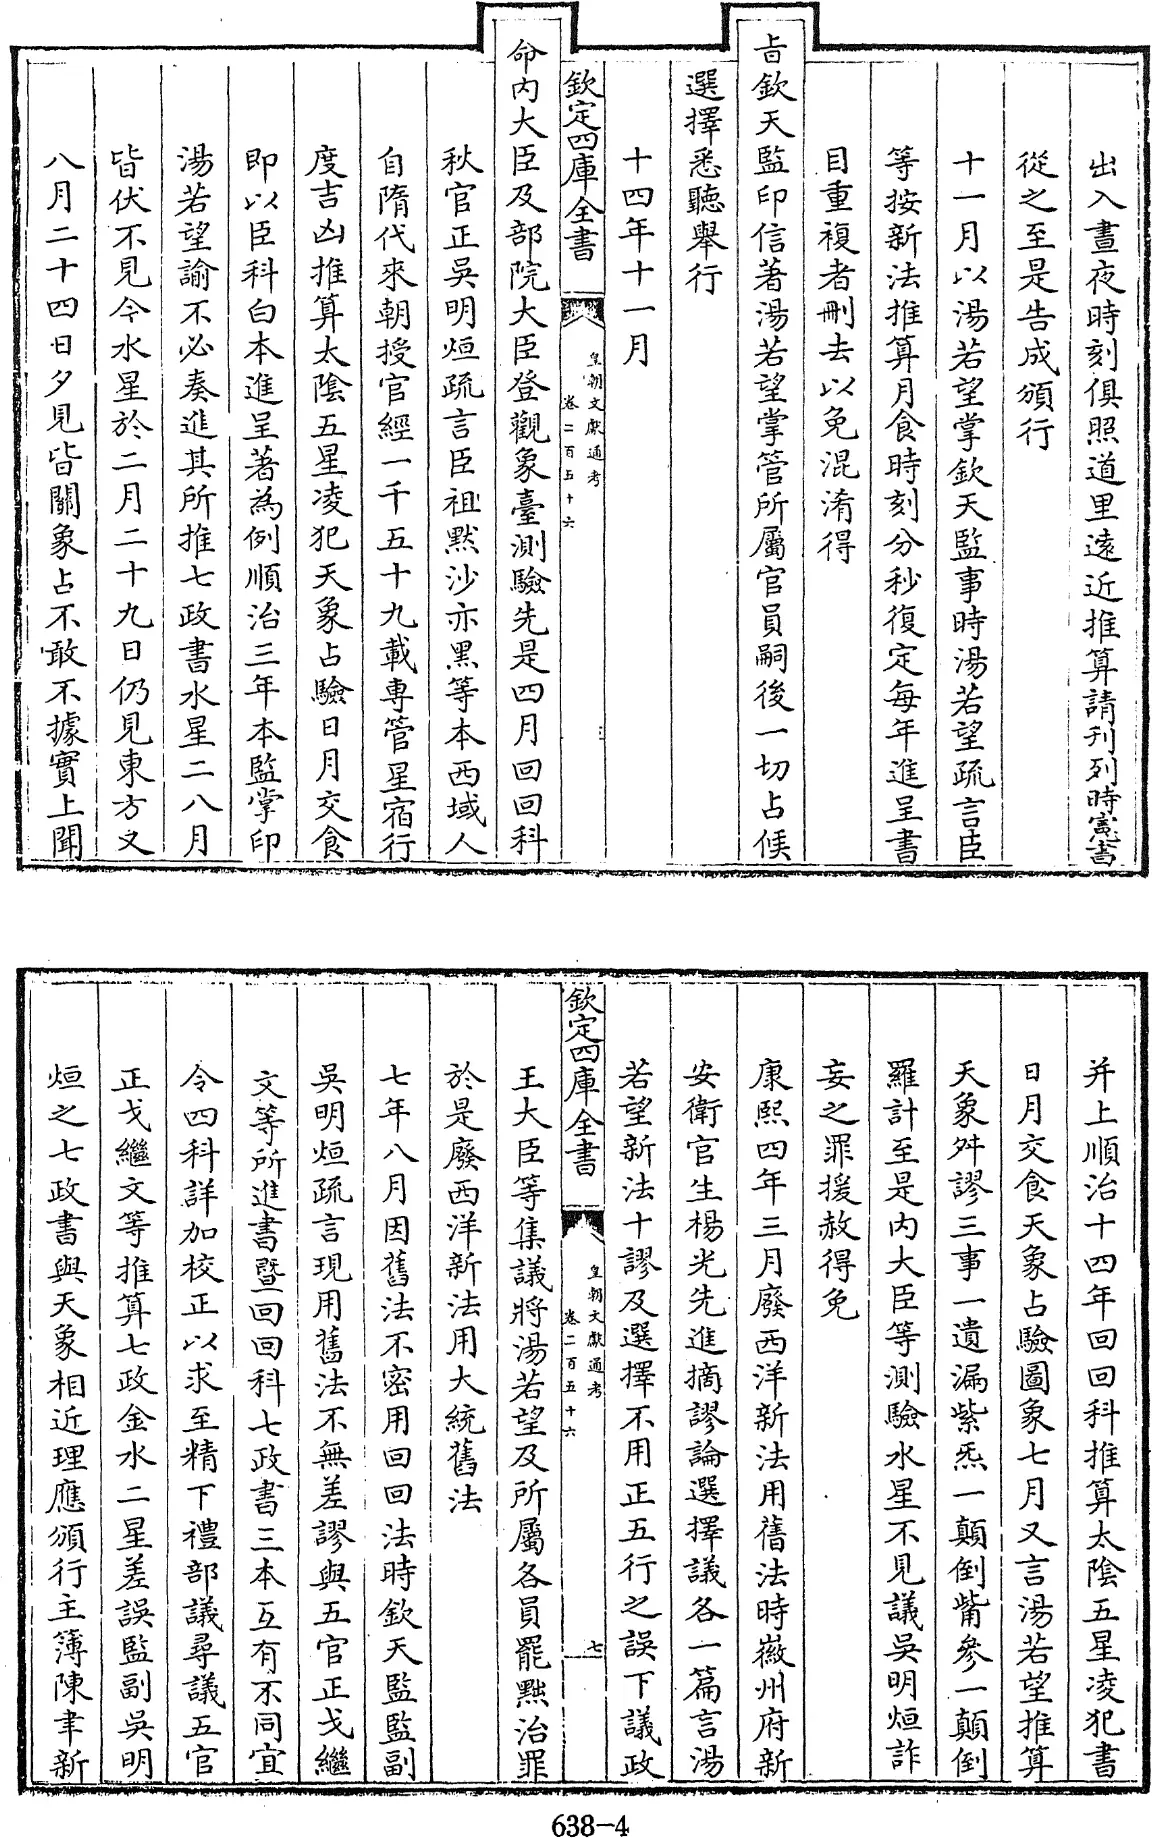 出入晝夜時刻俱照道里遠近推算請刊列時憲書
從之至是告成頒行
十一月以湯若望掌欽天監事時湯若望疏言臣
等按新法推算月食時刻分秒復定每年進呈書
目重複者刪去以免混淆得
旨欽天監印信著湯若望掌管所屬官員嗣後一切占候
選擇悉聽舉行
十四年十一月
欽定四庫全書
皇朝文獻通考
卷二百五十六
命內大臣及部院大臣登觀象臺測驗先是四月回回科
秋官正吳明烜疏言臣祖默沙亦黑等本西域人
自隋代來朝授官經一千五十九載專管星宿行
度吉凶推算太陰五星凌犯天象占驗日月交食
即以臣科白本進呈著為例順治三年本監掌印
湯若望諭不必奏進其所推七政書水星二八月
皆伏不見今水星於二月二十九日仍見東方又
八月二十四日夕見皆關象占不敢不據實上聞
并上順治十四年回回科推算太陰五星凌犯書
日月交食天象占驗圖象七月又言湯若望推算
天象舛謬三事一遺漏紫炁一顛倒觜參一顛倒
羅計至是內大臣等測驗水星不見議吳明烜詐
妄之罪援赦得免
康熙四年三月廢西洋新法用舊法時徽州府新
安衛官生楊光先進摘謬論選擇議各一篇言湯
若望新法十謬及選擇不用正五行之誤下議政
欽定四庫全書
皇朝文獻通考
卷二百五十六
七
王大臣等集議將湯若望及所屬各員罷黜治罪
於是廢西洋新法用大統舊法
七年八月因舊法不密用回回法時欽天監監副
吳明烜疏言現用舊法不無差謬與五官正戈繼
文等所進書暨回回科七政書三本互有不同宜
令四科詳加校正以求至精下禮部議尋議五官
正戈繼文等推算七政金水二星差誤監副吳明
烜之七政書與天象相近理應頒行主簿陳聿新
638-4